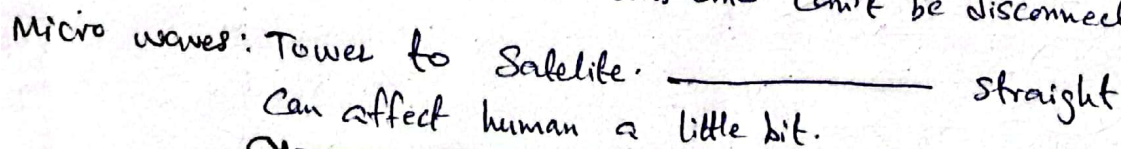 can't be disconnect
Micro waves: Tower to Satelite. ———— straight
Can affect human a little bit.